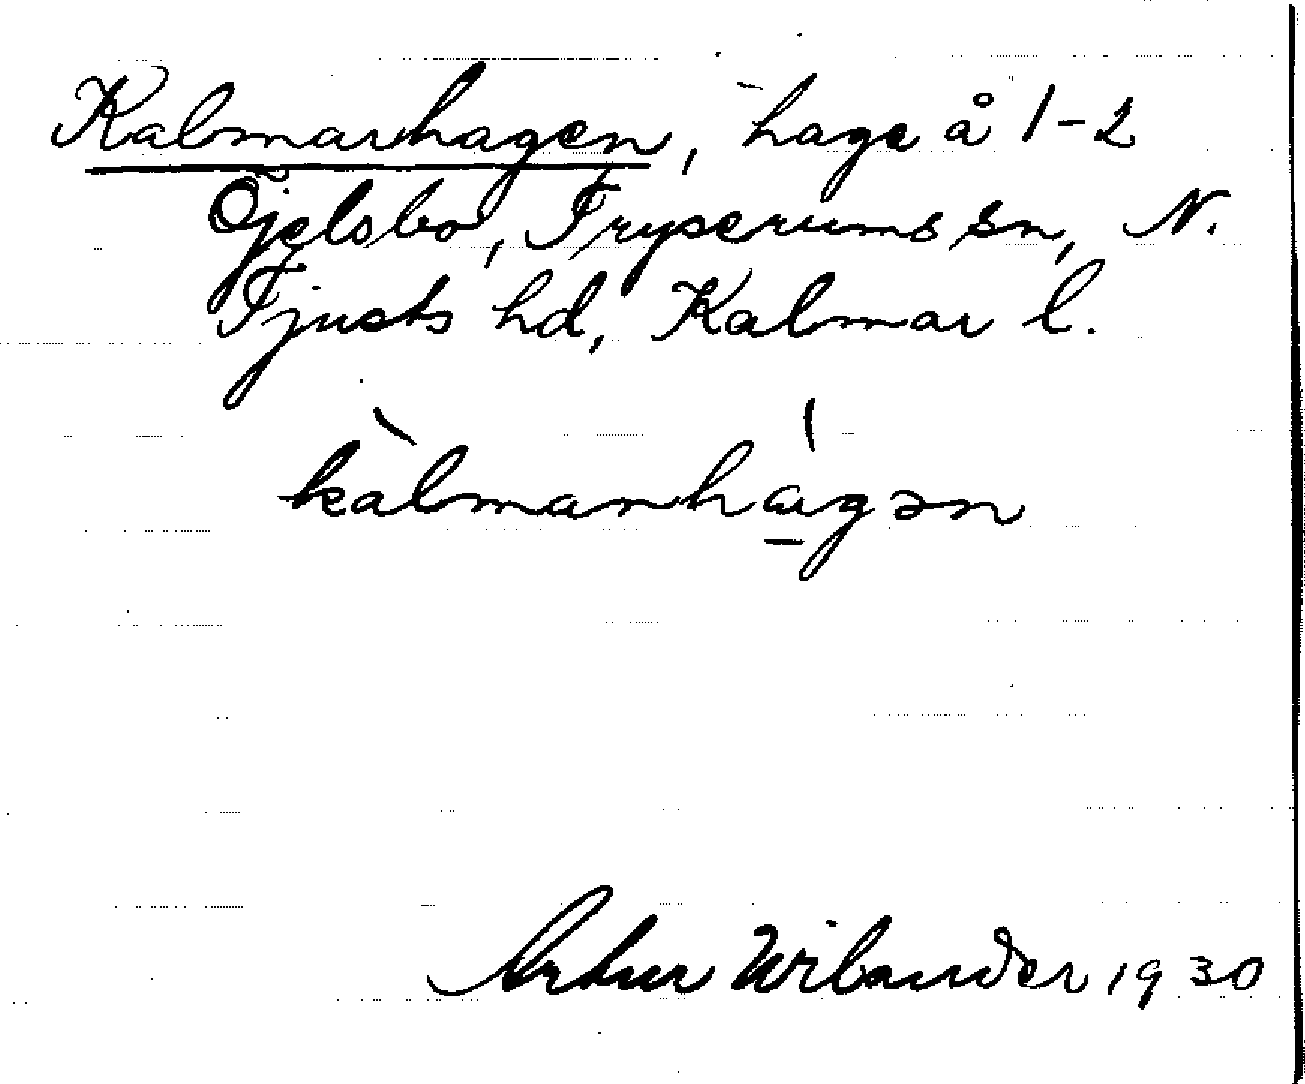 Kalmarhagen, hage å 1-2
Öjelsbo, Tryserums sn, N.
Tjusts hd, Kalmar l.
kàlmarhá̱gən
Artur Wilander 1930